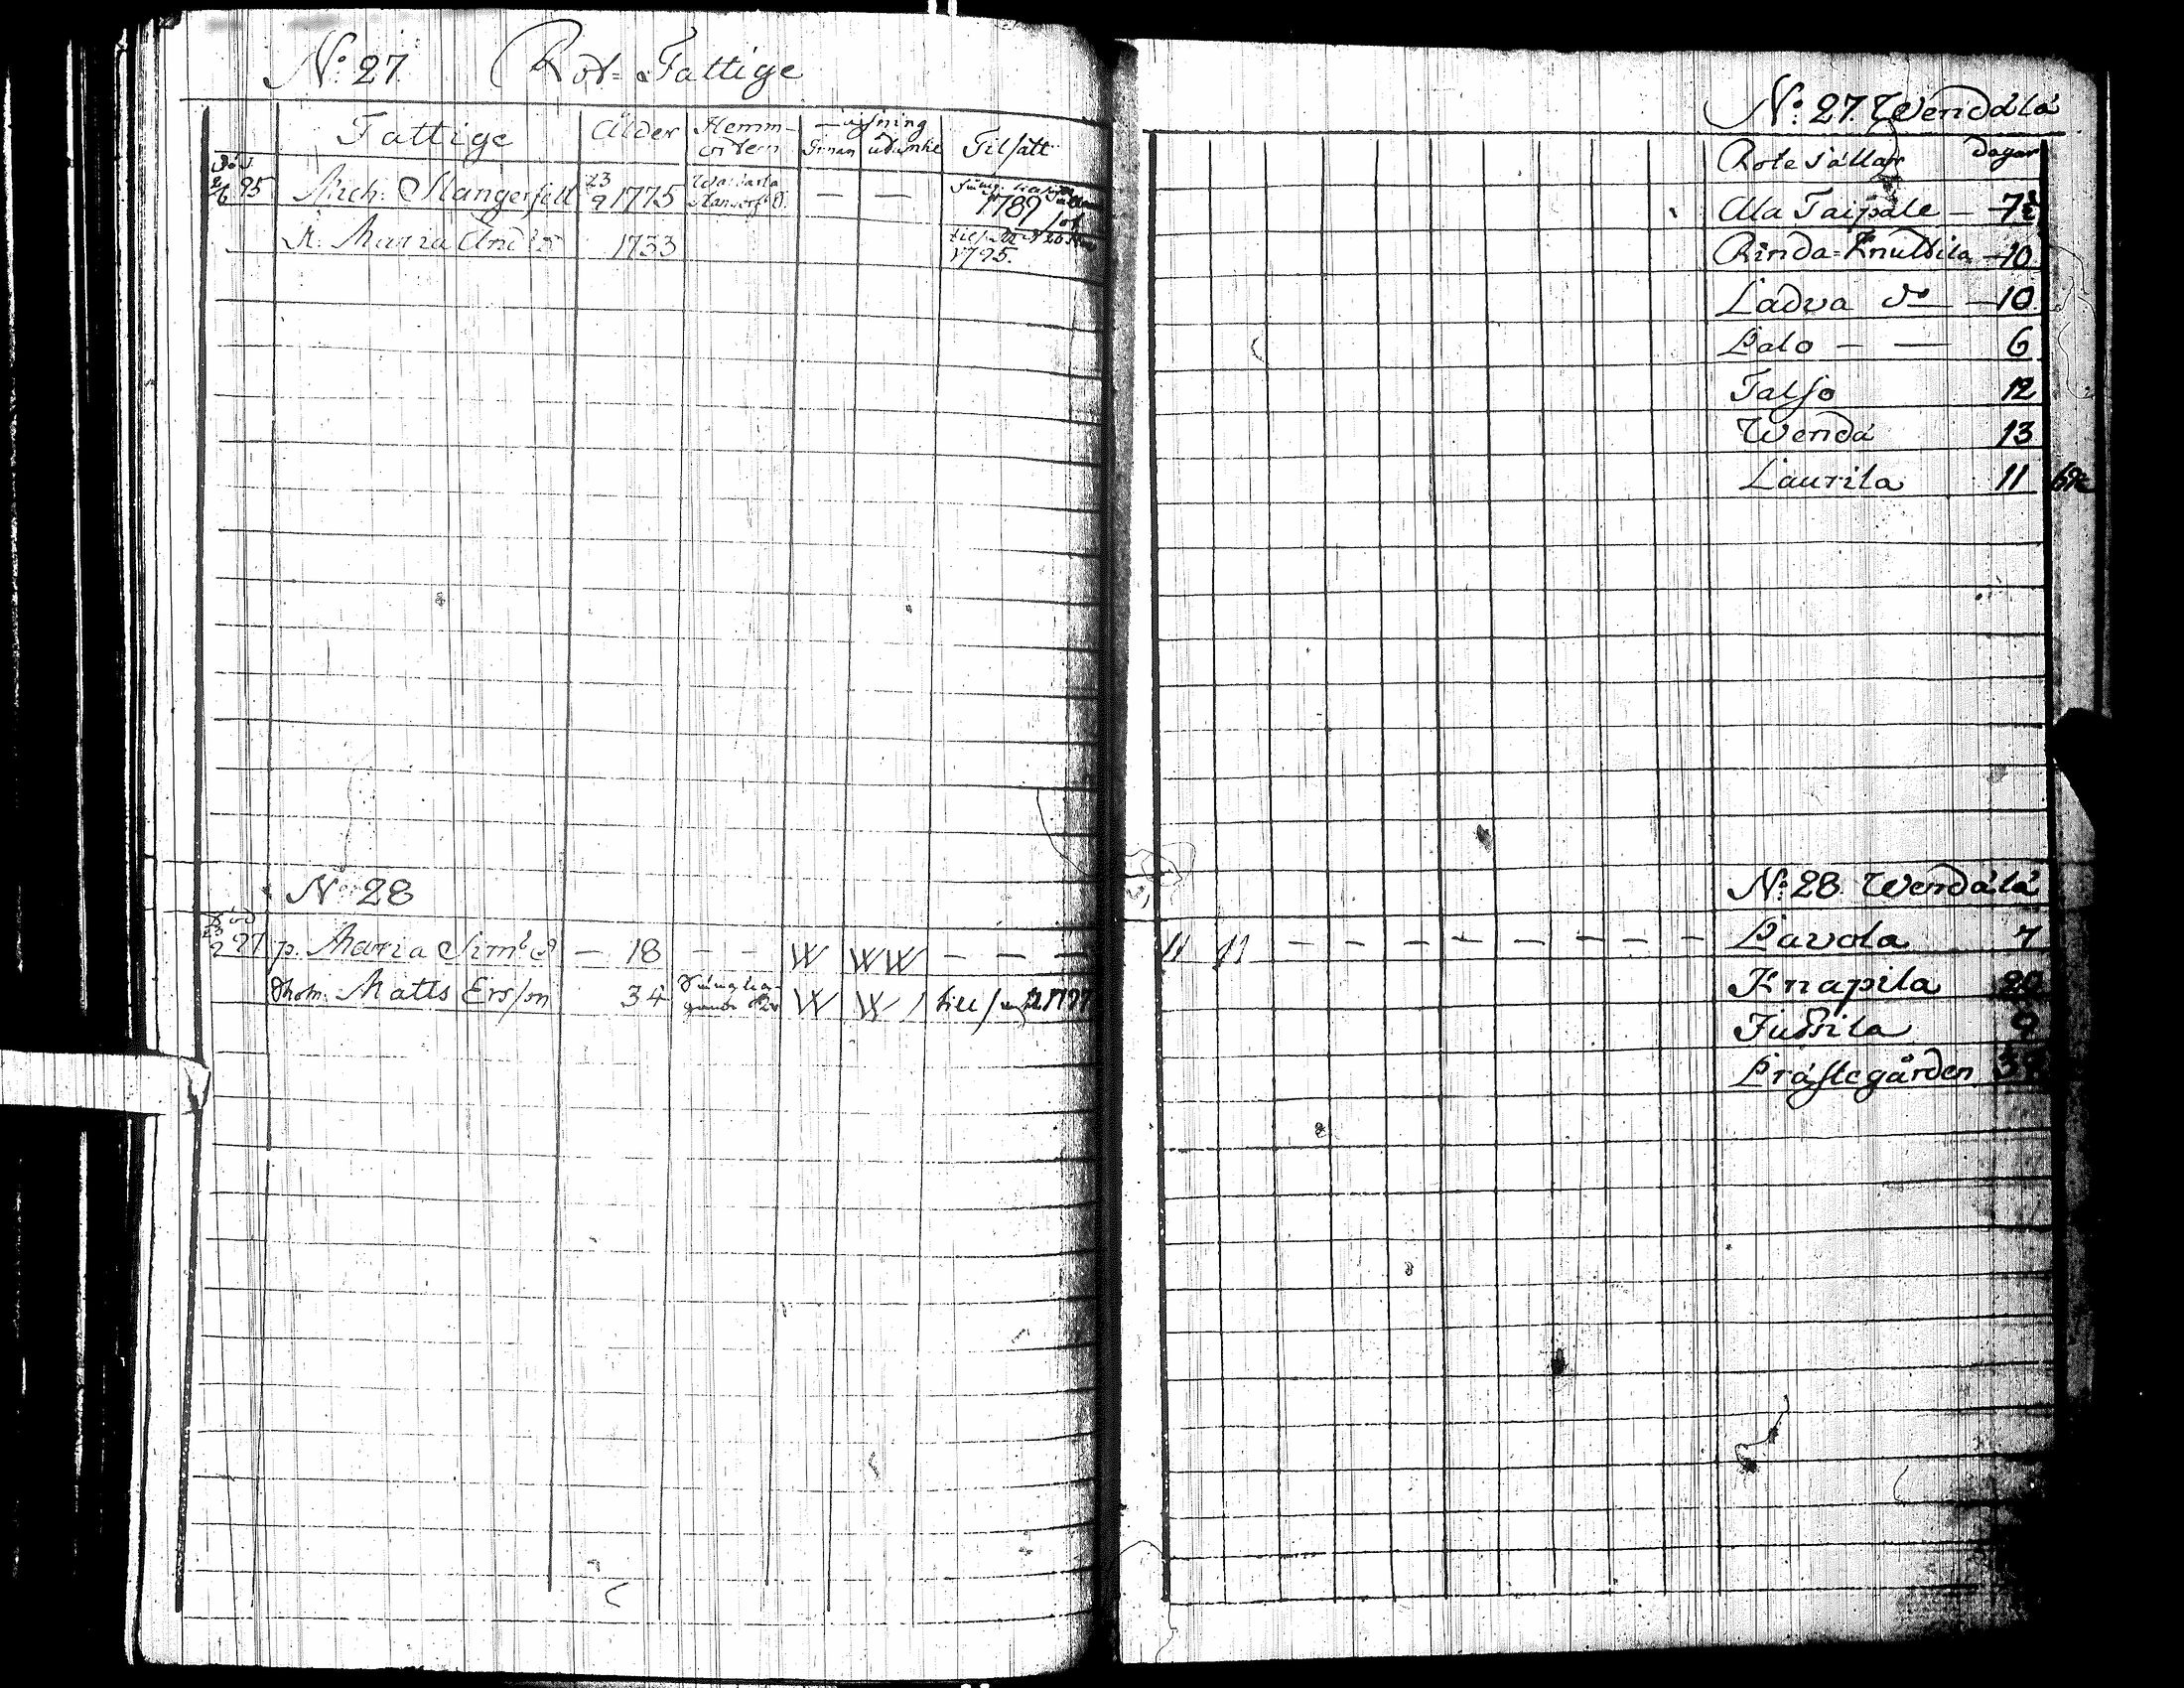 N:o 27 Rot=Fattige
Fattige Ålder Hemm- visning Tilsatt
Innan
Död
95 Mich: Mangerfelt 23/9 1775 — —
1789
A: Maria And:s D 1733
1795.
N:o 28
Död
97 p. Maria Sim:s D — 18 — — W WW — — —
Matts Ers/on 34 W W / till
N:o 27. Wendälä
Rote Sällar dagar
Ala Taipale — 7½
Rinda=Knuttila — 10
Ladva d:o — 10
Palo — — 6
Taljo 12
Wendä 13
Laurila 11
N:o 28 Wendälä
11 11 — — — — — — — — Pavola 7
Knapila 20
Jussila 9
Prästegården